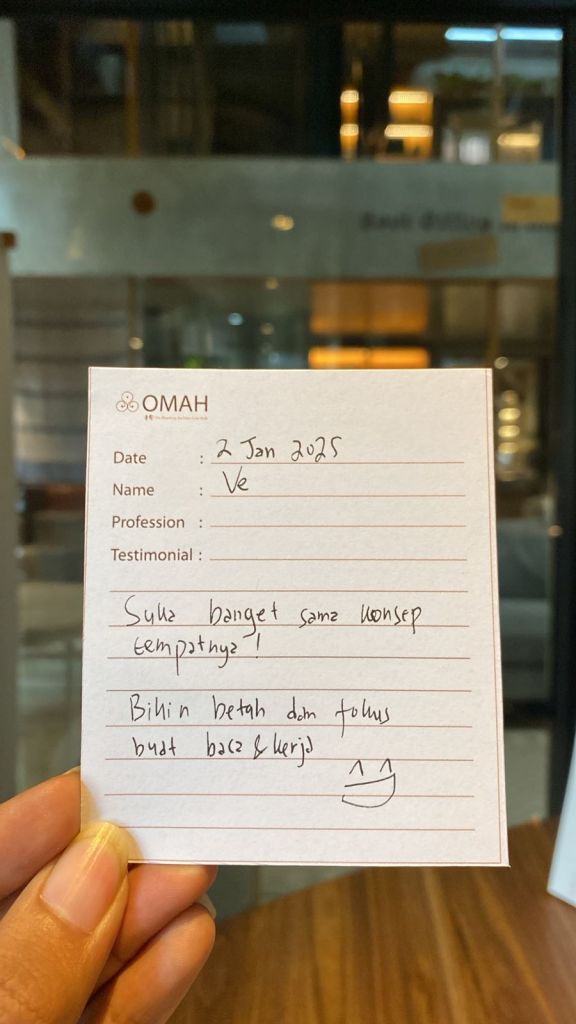 OMAH
Date : 2 Jan 2025
Name : Ve
Profession :
Testimonial :
Suka banget sama konsep
tempatnya!
Bikin betah dan fokus
buat baca & kerja